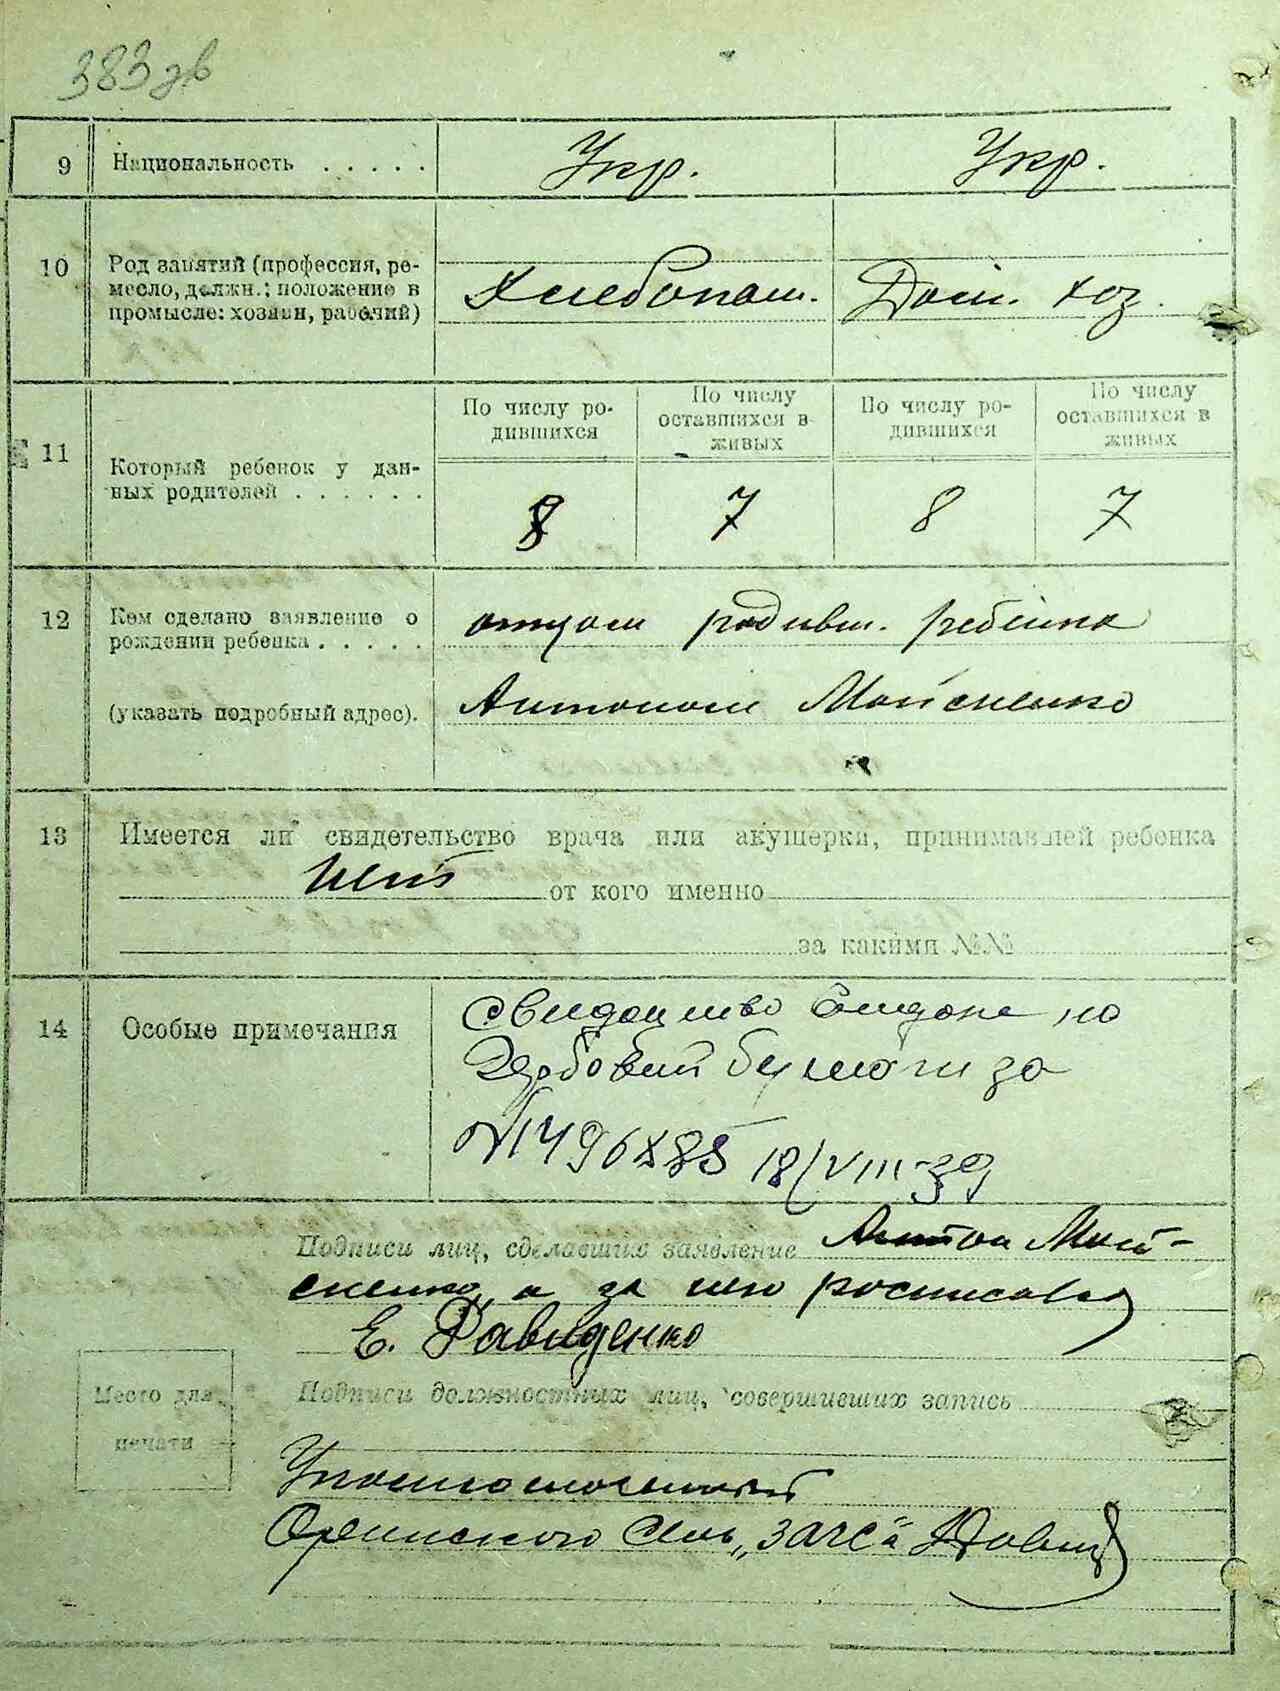 383 зв
9 Национальность . . . . . Укр. Укр.
10 Род занятий (профессия, ре-
месло, должн.; положение в
промысле: хозяин, рабочий) Хлебопаш. Дом. хоз.
11 Который ребенок у дан-
ных родителей . . . . . .
По числу ро-
дившихся
По числу
оставшихся в
живых
По числу ро-
дившихся
По числу
оставшихся в
живых
8 7 8 7
12 Кем сделано заявление о
рождении ребенка . . . . .
(указать подробный адрес).
отцом родивш. ребенка
Антоном Мойсеенко
13 Имеется ли свидетельство врача или акушерки, принимавшей ребенка
Нет от кого именно
за какими №№
14 Особые примечания
Свидоцтво видоно но
Гербовий бумоги зо
18/VIII-39
Подписи лиц, сделавших заявление Антон Мой-
сеенко, а за него росписався
Е. Давиденко
Место для
печати
Подписи должностных лиц, совершивших запись
Уполномоченный
"ЗАГС"а